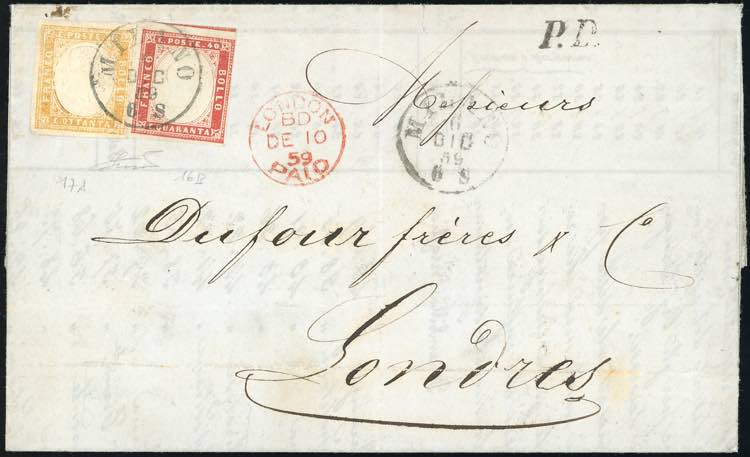 C. POSTE 40
FRANCO
BOLLO
QUARANTA
FRANCO
OTTANTA
MILANO
DIC
59
6 S
P.D.
LONDON
BD
DE 10
59
PAID
MILANO
DIC
59
6 S
Messieurs
Dufour frères & C
Londres
17d
16B